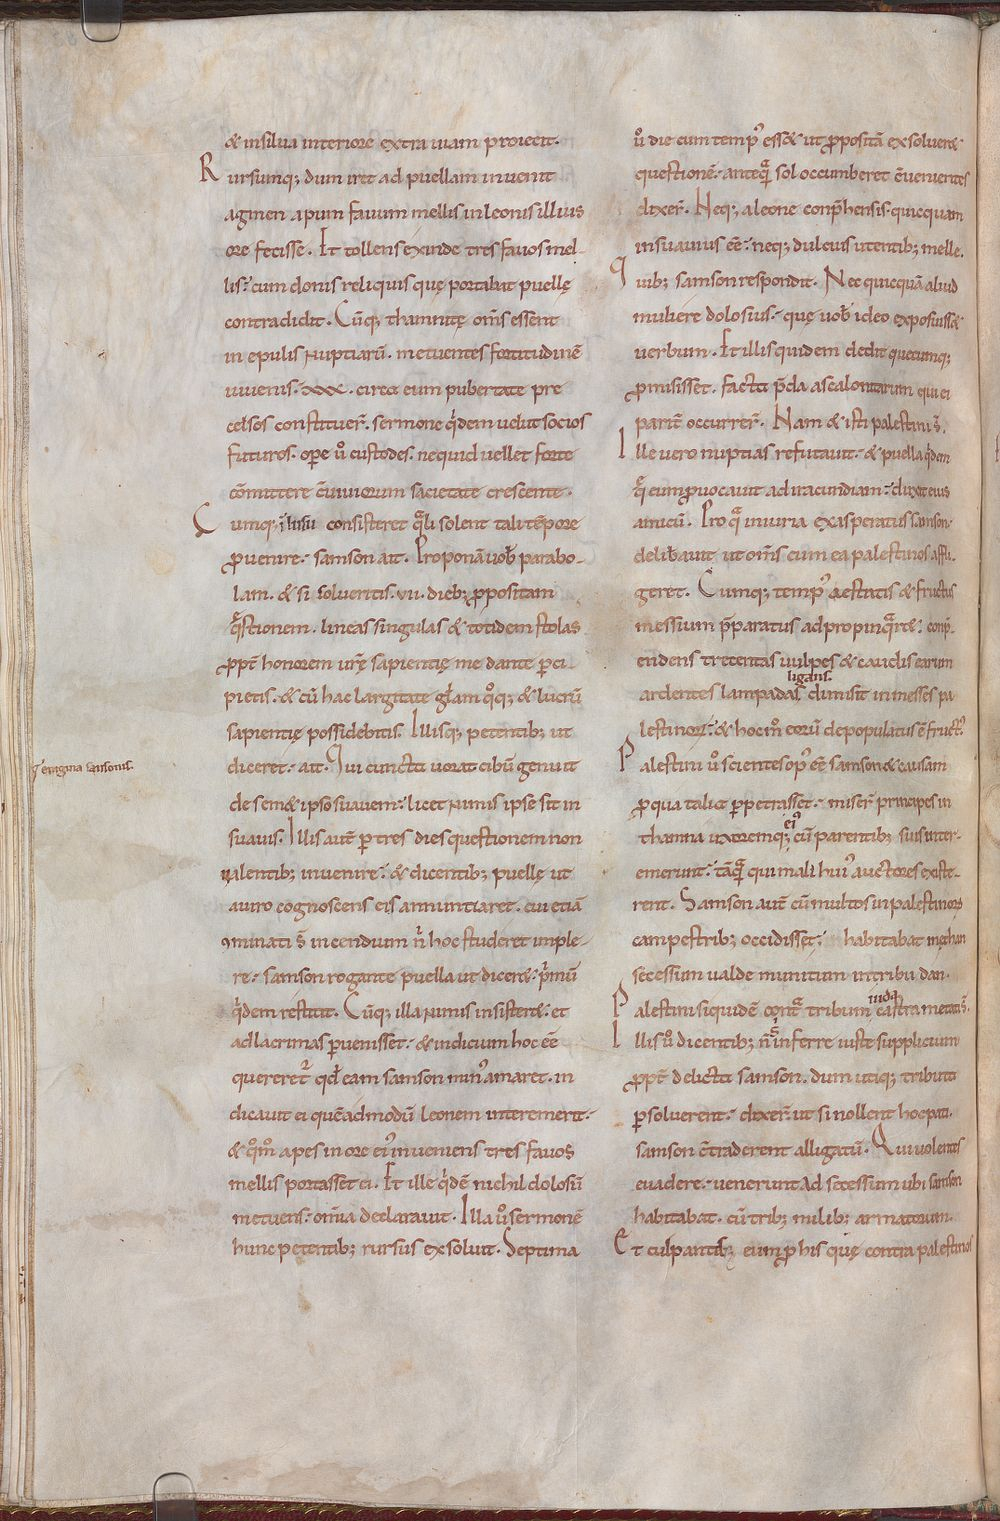 & insilua interiore extra uiam proiecit.
Rursumq; dum iret ad puellam inuenit
agmen apum fauum mellis in leonis illius
ore fecisse. Et tollens exinde tres fauos mel-
lis: cum donis reliquis quę portabat puellę
contradidit. Cūq; thamnitę om̄s essent
in epulis nuptiarū. metuentes fortitudinē
iuuenis. xxx. circa eum pubertate pre
celsos constituer̄. sermone q̇dem uelut socios
futuros. opere ů custodes. nequid uellet forte
cōmittere c̄uiuiorum sacietate crescente.
Cumq; ī lusu consisteret q̄li solent tali tēpore
ꝓuenire. samson ait. Proponā uob̄ parabo-
lam. & si solueritis .vii. dieb; ꝓpositam
q̄stionem. lineas singulas & totidem stolas
ꝓpt̄ honorem ur̄ę sapientię me dante ꝑci-
pietis. & cū hac largitate gl̄am q̊q; & lucrū
sapientię possidebitis. Illisq; petentib; ut
diceret. ait. Qui cuncta uorat cibū genuit
Enigma samsonis.
de sem& ipso suauem: licet nimis ipse sit in
suauis. Illis aut̄ ꝑ tres dies questionem non
ualentib; inuenire: & dicentib; puellę ut
a uiro cognoscens eis annuntiaret. cui etiā
ꝯminati s̄ incendium n̄ hoc studeret imple-
re. samson rogante puella ut dicer&: p̄mū
q̇dem restitit. Cūq; illa nimis insister&: et
ad lacrimas ꝑuenisset. & indicium hoc eē
quereret᷑ qd̄ eam samson min᾽ amaret. in
dicauit ei quēadmodū leonem interemerit.
& q̊m̊ apes in ore ei᾽ inueniens tres fauos
mellis portasset ei. Et ille q̇dē nichil dolosū
metuens. om̄ia declarauit. Illa ů sermonē
hunc petentib; rursus exsoluit. Septima
ů die cum temp᾽ ess& ut ꝓpositā exsoluer&
questionē. anteq̄ sol occumberet c̄uenientes
dixer̄. Neq; a leone conp̄hensis quicquam
insuauius eē: neq; dulcius utentib; melle.
Quib; samson respondit. Nec quicquā aliud
muliere dolosius. quę uob̄ ideo exposuiss&
uerbum. Et illis quidem dedit quecumq;
ꝓmisisset. facta p̄da ascalonitarum qui ei
parit̄ occurrer̄. Nam & isti palestini s̄.
Ille uero nuptias refutauit. & puella q̇dem
q̄ eum ꝓuocauit ad iracundiam: dux& eius
amicū. Pro q̄ iniuria exasperatus samson.
delib̄auit ut om̄s cum ea palestinos affli-
geret. Cumq; temp᾽ aestatis & fructus
messium p̄paratus adpropinq̄r&: conp̄-
endens trecentas uulpes & caudis earum
ligans.
ardentes lampadas, dimisit in messes pa
lestinor̄: & hoc m̊ eorū depopulatus ē fruct᾽.
Palestini ů scientes op᾽ eē samson & causam
ꝓ qua talia ꝑpetrasset. miser̄ principes in
ei᾽
thamna uxoremq; cū parentib; suis inter-
emerunt: tāq̄ qui mali hui᾽ auctores existe-
rent. Samson aut̄ cū multos in palestinorū
campestrib; occidisset: habitabat męthan
secessium ualde munitum in tribu dan.
iuda
Palestini siquidē cont̄ tribum castra metati s̄.
Illis ů dicentib; n̄ s̄ inferre iuste supplicium
ꝓpt̄ delicta samson. dum utiq; tributa
ꝑsoluerent. dixer̄ ut si nollent hoc pati.
samson c̄traderent alligatū. Qui uolentes
euadere. uenerunt ad secessium ubi samson
habitabat. cū trib; milib; armatorum.
Et culpantib; eum ꝓ his quę contra palestinos